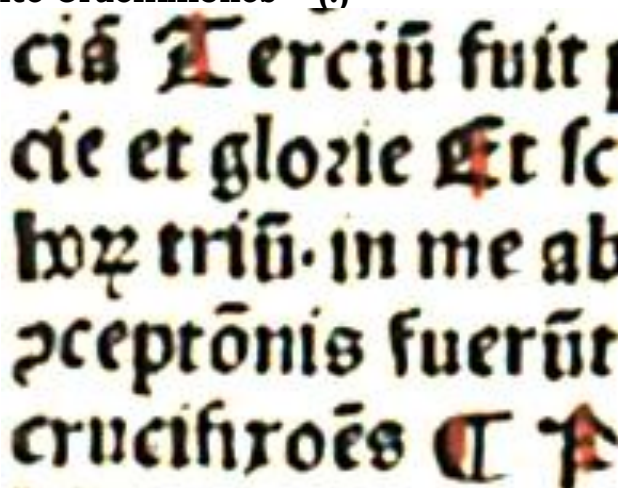 ciā Terciū fuit
cie et gloꝛie Et ſc
hoꝝ triū· in me ab
ꝯceptōnis fuerūt
crucifixōēs ¶